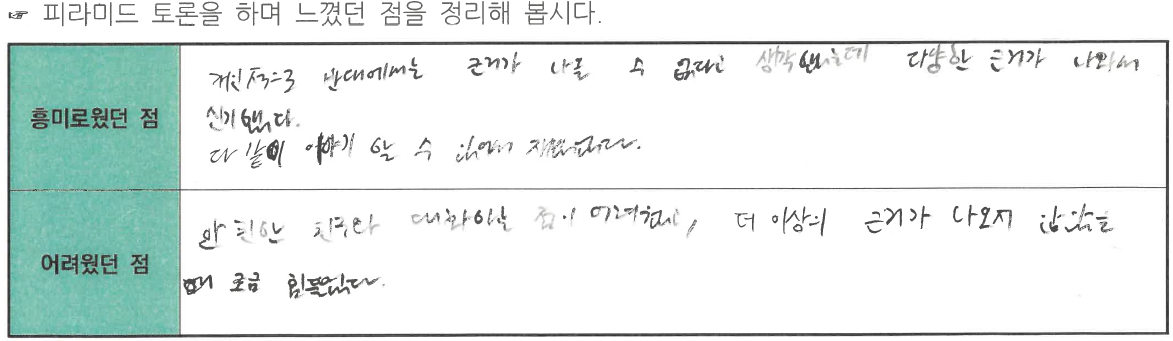 ☞ 피라미드 토론을 하며 느꼈던 점을 정리해 봅시다.
흥미로웠던 점
개인적으로 반대에서는 근거가 나올 수 없다고 생각했는데 다양한 근거가 나와서
신기했다.
다 같이 이야기 할 수 있어서 재밌었다.
어려웠던 점
안 친한 친구와 대화하는 점이 어려웠고, 더 이상의 근거가 나오지 않았을
때 조금 힘들었다.